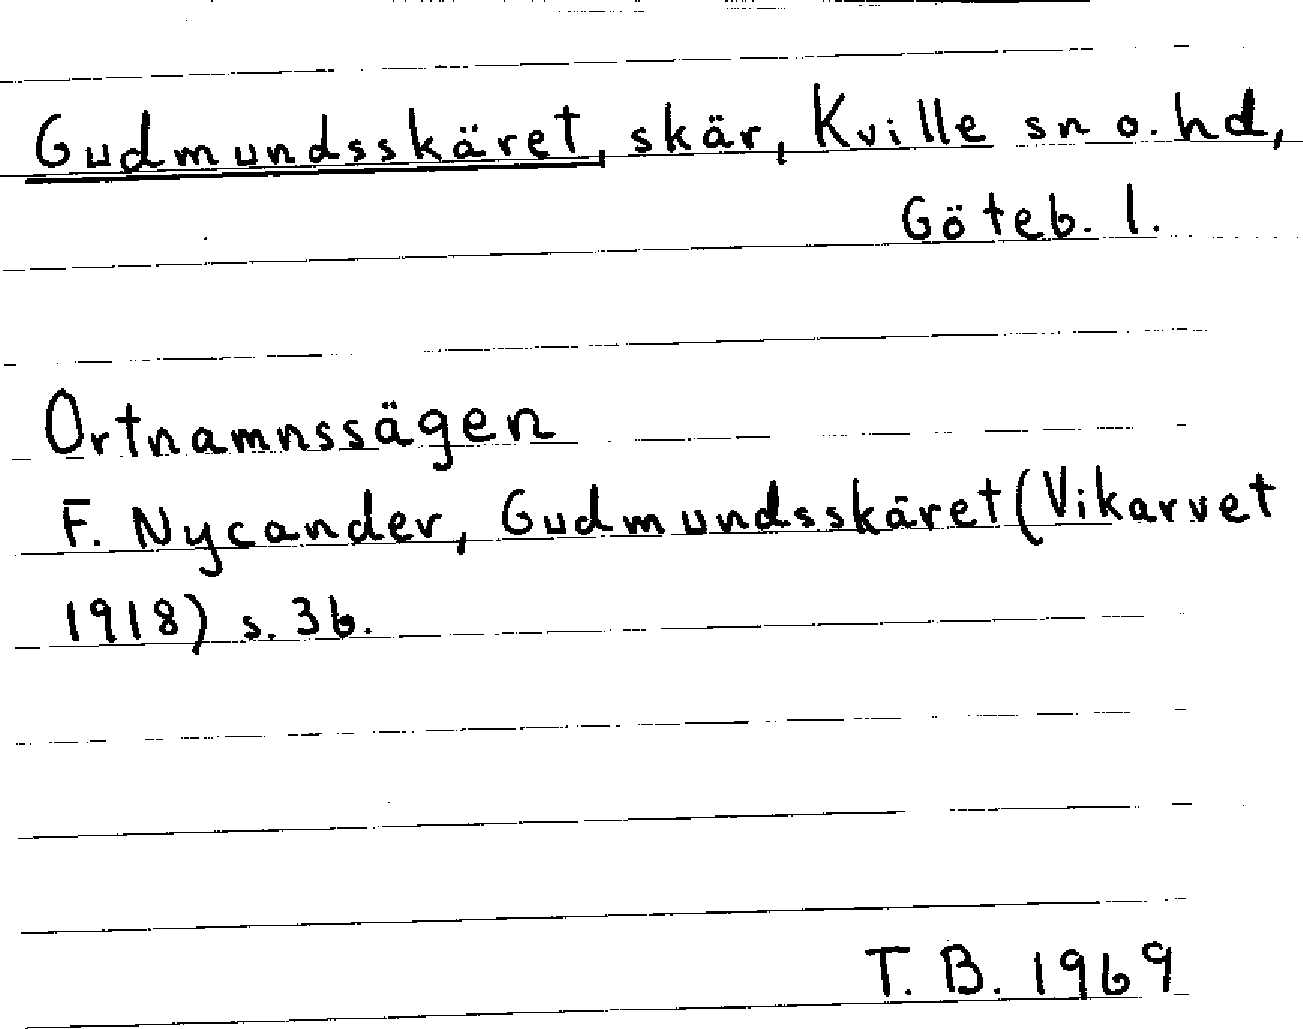 Gudmundsskäret, skär, Kville sn o. hd,
Göteb. l.
Ortnamnssägen
F. Nycander, Gudmundsskäret (Vikarvet
1918) s. 36.
T. B. 1969